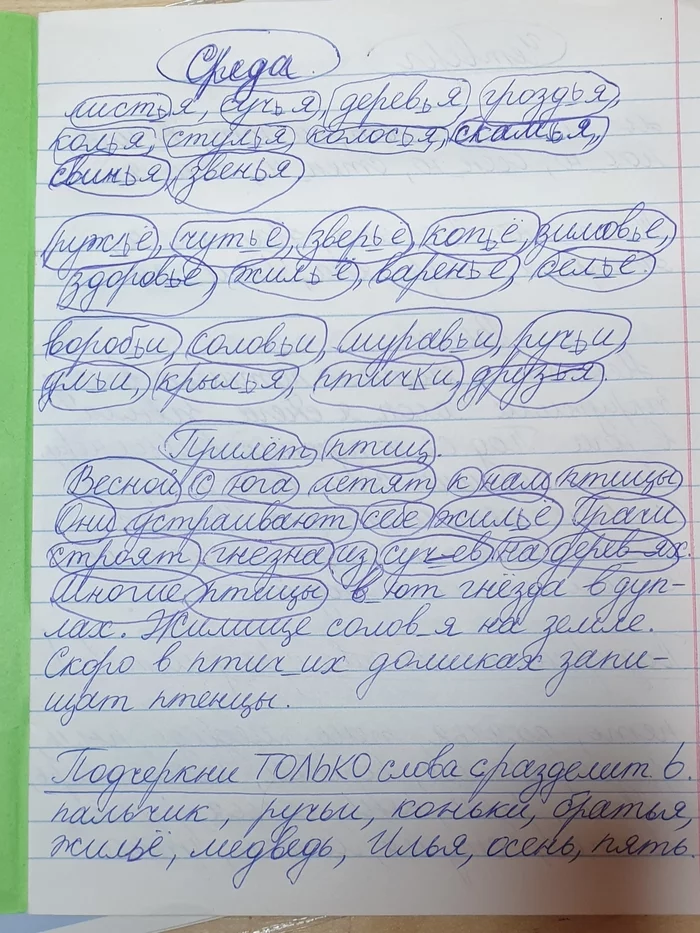 Среда.
листья, сучья, деревья, гроздья,
колья, стулья, колосья, скамья,
свинья, звенья
ружьё, чутьё, зверьё, копьё, зимовье,
здоровье, жильё, варенье, бельё.
воробьи, соловьи, муравьи, ручьи,
ульи, крылья, птички, друзья.
Прилёт птиц.
Весной с юга летят к нам птицы
Они устраивают себе жильё Грачи
строят гнезна из сучьев на дерев_ях.
Многие птицы в_ют гнёзда в дуп-
лах. Жилище солов_я на земле.
Скоро в птич_их домиках запи-
щат птенцы.
Подчеркни ТОЛЬКО слова с разделит. ь.
пальчик, ручьи, коньки, братья,
жильё, медведь, Илья, осень, пять.